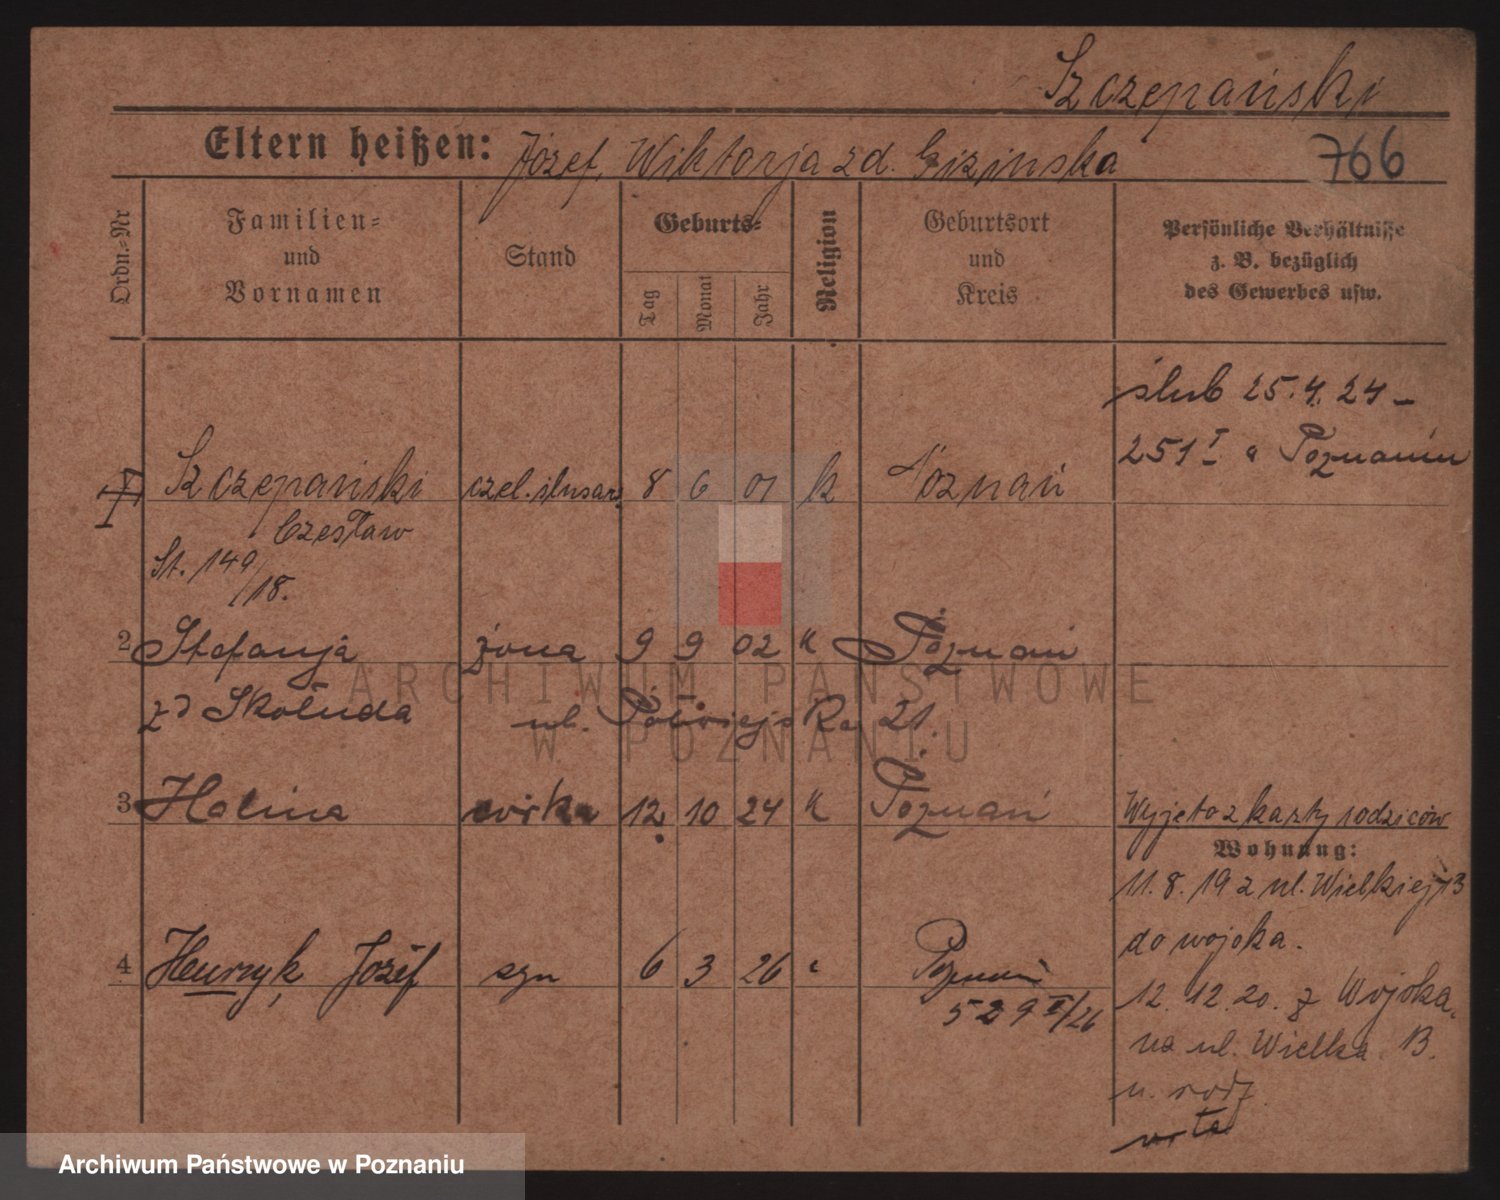 Szczepański
Eltern heißen: Józef, Wiktorja zd. Gizinska
766
Ordn.-Nr
Familien-
und
Vornamen
Stand
Geburts-
Tag
Monat
Jahr
Religion
Geburtsort
und
Kreis
Persönliche Verhältnisse
z. B. bezüglich
des Gewerbes usw.
ślub 25.4.24 –
251 I a Poznaniu
1 Szczepański czel. ślusar. 8 6 01 k Poznań
Czesław
St. 149/18.
2 Stefanja żona 9 9 02 k Poznań
zd Skołuda ul. Półwiejska 21.
3 Halina córka 12 10 24 k Poznań
Wyjęto z karty rodziców
Wohnung:
11. 8. 19 z ul. Wielkiej 13
do wojska.
4 Henryk, Józef syn 6 3 26 " Poznań
529 II/26
12. 12. 20. z Wojska
na ul. Wielka 13.
u. rodz.
ARCHIWUM PAŃSTWOWE
W POZNANIU
Archiwum Państwowe w Poznaniu